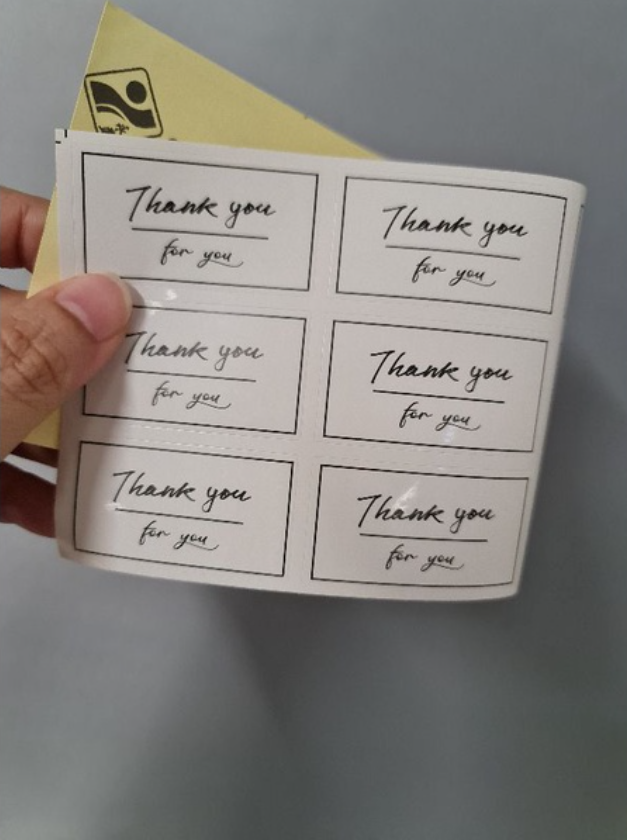 Thank you
for you
Thank you
for you
Thank you
for you
Thank you
for you
Thank you
for you
Thank you
for you